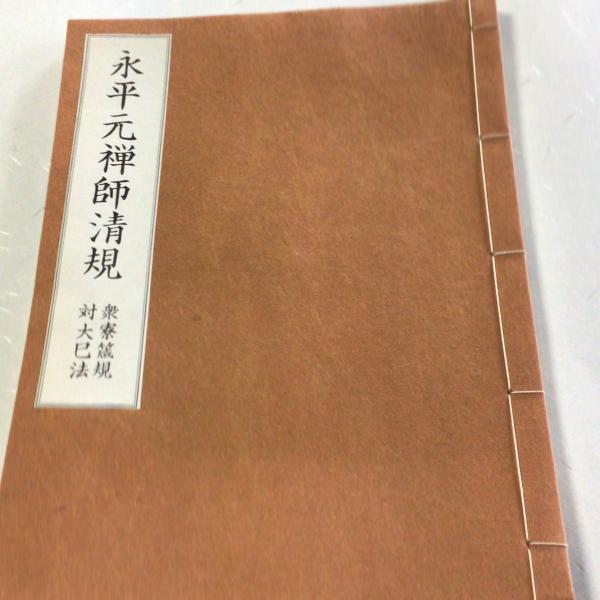 永平元禅師清規
衆寮箴規
対大己法